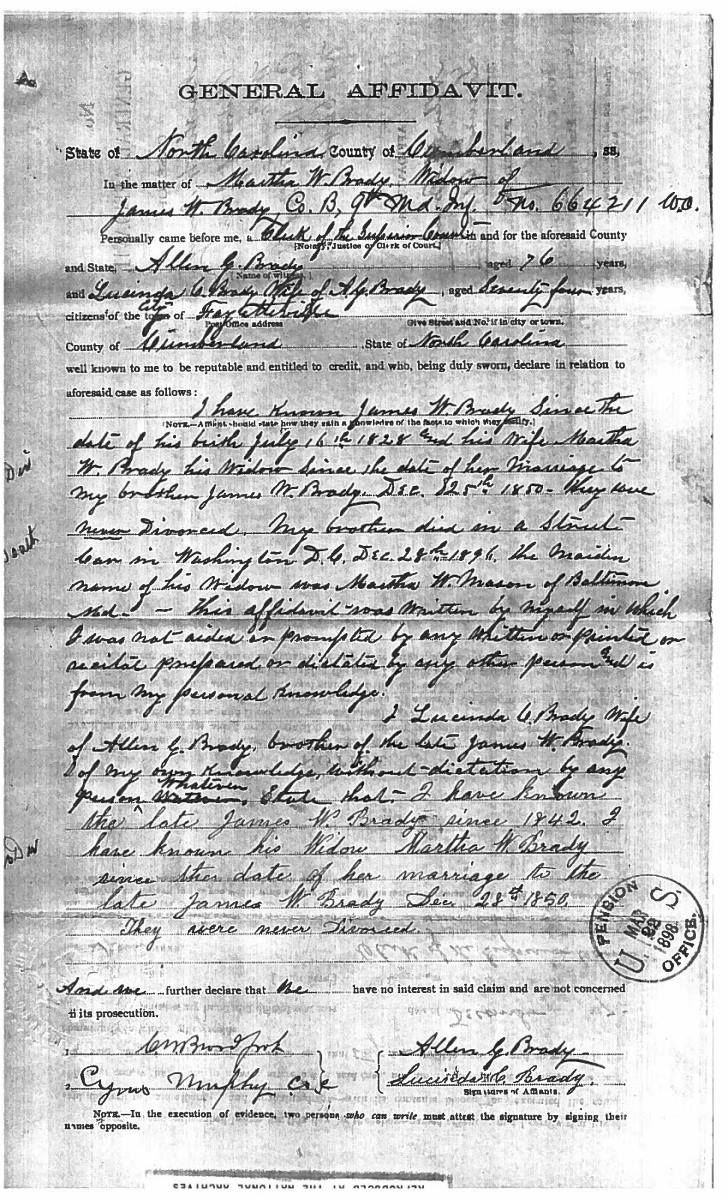 GENERAL AFFIDAVIT.
State of North Carolina, County of Cumberland, ss,
In the matter of Martha W. Brady, Widow of
James W. Brady, Co. B, 9th Md. Inf. No. 664211 W.O.
Personally came before me, a Clerk of the Superior Court in and for the aforesaid County
[Notary, Justice or Clerk of Court,]
and State, Allen G. Brady aged 76 years,
Name of witness.
and Lucinda C. Brady Wife of A.G. Brady, aged Seventy four years,
City
citizens of the town of Fayetteville
Post Office address Give Street and No. if in city or town.
County of Cumberland, State of North Carolina
well known to me to be reputable and entitled to credit, and who, being duly sworn, declare in relation to
aforesaid case as follows:
I have Known James W. Brady Since the
[NOTE.—Affiant should state how they gain a knowledge of the facts to which they testify.]
date of his birth July 16th 1828 and his Wife Martha
W. Brady his Widow Since the date of her Marriage to
my brother James W. Brady. Dec. 25th 1850 - they were
never Divorced. My brother died in a Street
Car in Washington D.C. Dec. 28th 1896. the Maiden
name of his Widow was Martha W. Mason of Baltimore
Md. - this affidivit was written by myself in which
I was not aided or prompted by any written or printed or
recital prepared or dictated by any other person and is
from my personal Knowledge.
I Lucinda C. Brady Wife
of Allen G. Brady, brother of the late James W. Brady.
of my own Knowledge, without dictation by any
Whatever
person State that I have known
the late James W. Brady since 1842. I
have known his Widow Martha W. Brady
since the date of her marriage to the
late James W Brady Dec. 28st 1850.
They were never Divorced.
PENSION OFFICE.
U. S.
MAR
1898
And we further declare that we have no interest in said claim and are not concerned
in its prosecution.
Allen G. Brady
Cyrus Murphy
Lucinda C Brady.
Signatures of Affiants.
NOTE.—In the execution of evidence, two persons who can write must attest the signature by signing their
names opposite.
REPRODUCED AT THE NATIONAL ARCHIVES